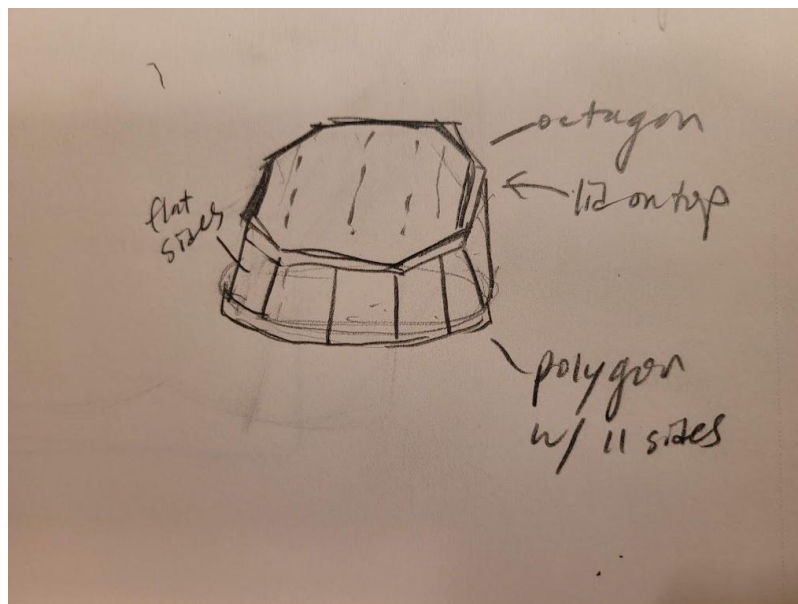 octagon
lid on top
flat
sides
polygon
w/ 11 sides